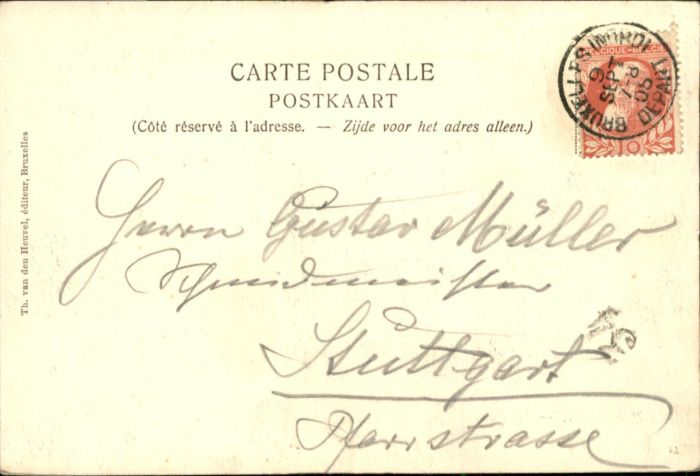 CARTE POSTALE
POSTKAART
(Côté réservé à l'adresse. — Zijde voor het adres alleen.)
BELGIQUE-BELGIË
10
BRUXELLES (NORD)
9
SEPT
7-8
05
DÉPART
Th. van den Heuvel, éditeur, Bruxelles
Herrn Gustav Müller
Schneidmeister
Stuttgart
Pfarrstrasse